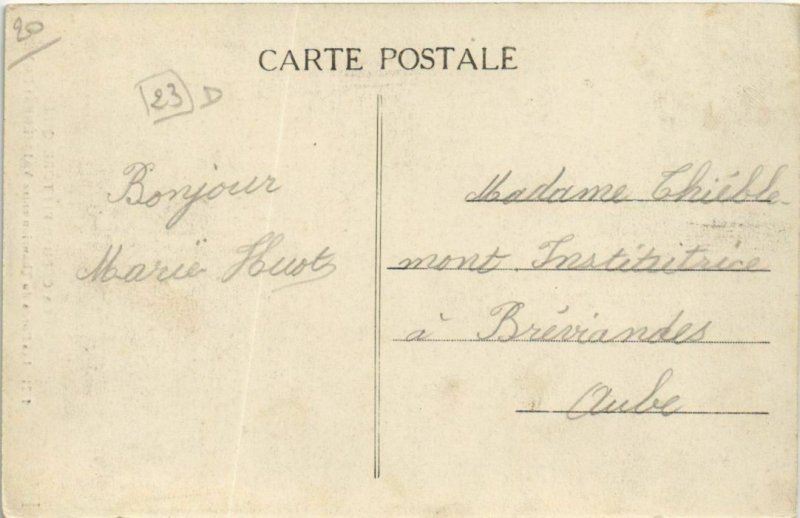 20
CARTE POSTALE
23 D
Bonjour
Marie Huot
Madame Thiéble-
mont Institutrice
à Bréviandes
Aube